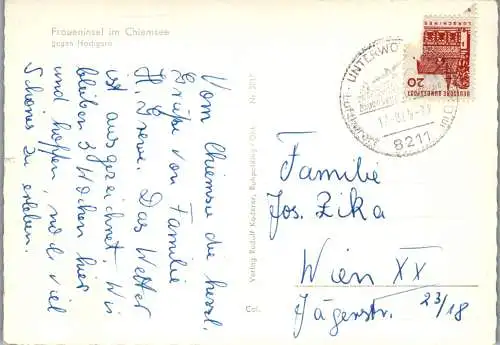 Fraueninsel im Chiemsee
gegen Hochgern
Vom Chiemsee die herzl.
Grüße von Familie
H. Drewe. Das Wetter
ist ausgezeichnet. Wir
bleiben 3 Wochen hier
und hoffen, noch viel
Schönes zu erleben.
Verlag Rudolf Kiederer, Ruhpolding/Obb.
Nr. 3017
Col.
UNTERWÖ
8211
DEUTSCHE BUNDESPOST
20
Familie
Jos. Zika
Wien XX
Jägerstr. 23/18